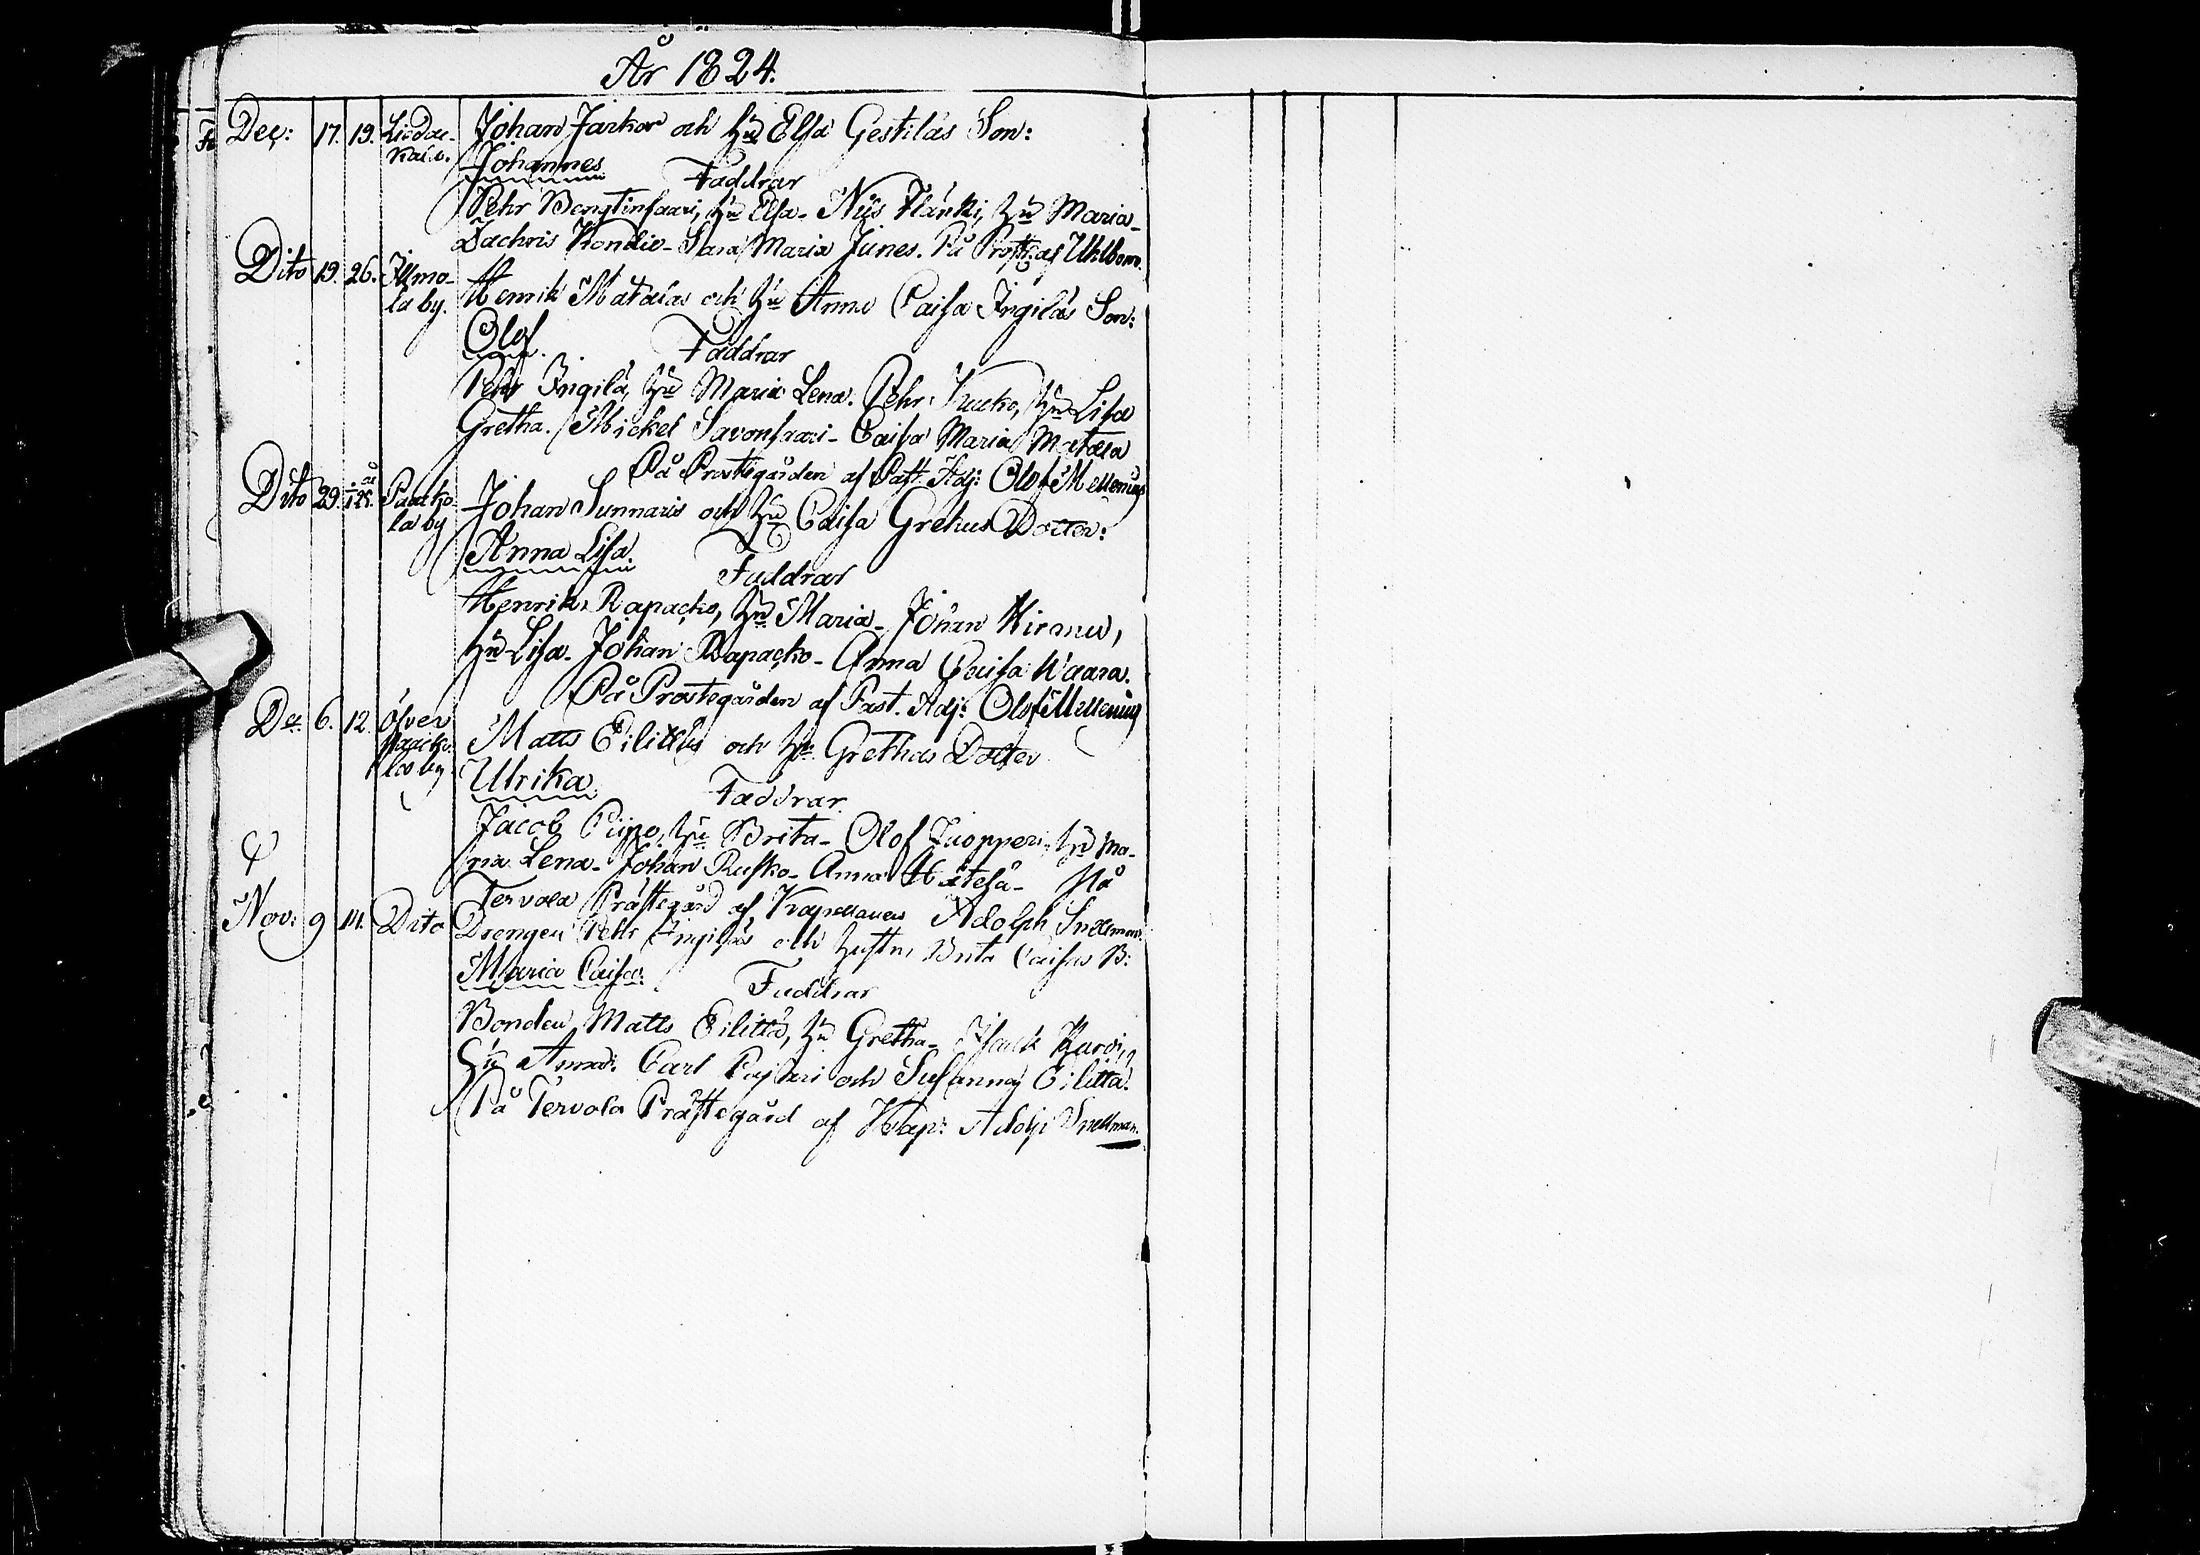 År 1824.
Dec: 17. 19. Johan Jarkos och hu Elsa Gestilas Son:
Johannes
Faddrar
Pehr Bengtinsaari, hu Elsa - Nils Flanki, hu Maria -
Zachris Kondio - Sara Maria Junes. På Prostg: af Uhlbom.
Dito 19. 26. Ilmo-
la by. Henrik Matalas och hu Anna Caisa Ingiläs Son:
Olof.
Faddrar
Pehr Ingilä, hu Maria Lena. Pehr hu Lisa
Gretha. Mickel Savonsaari - Caisa Maria Matala
På Prostegården af Past. Adj: Olof Mellenius
Dito 29. Paacko-
la by Johan Sunnaris och hu Caisa Grekus Dotter:
Anna Lisa.
Faddrar
Henrik Rapacko, hu Maria - Johan
hu Lisa. Johan Rapacko - Anna Caisa Waara.
På Prostegården af Past. Adj: Olof Mellenius
Dec. 6. 12. Öfver
Paacko-
la by. Matts Eilittäs och hu Grethas Dotter
Ulrika.
Faddrar.
Jacob Piipo, hu Brita - Olof Juopperi, hu Ma-
ria Lena - Johan Rusko - Anna - På
Tervola Prästegård af Kapellanen Adolph Snellman.
Nov: 9 14. Dito Drengen Pehr Ingiläs och hustru Brita Caisas B:
Maria Caisa.
Faddrar
Bonden Matts Eilittä, hu Gretha - Isack
hu Anna. Carl Pajari och Susanna Eilittä.
På Tervola Prästegård af Kap: Adolp Snellman.